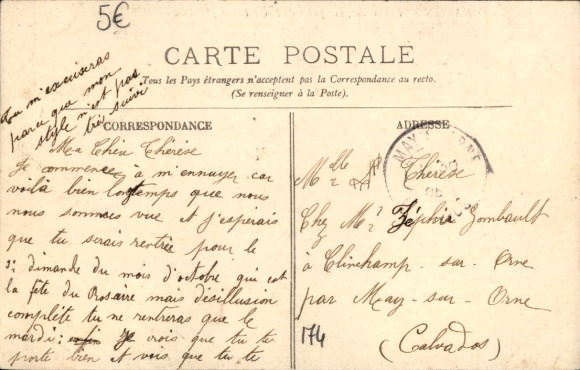 5€
CARTE POSTALE
Tous les Pays étrangers n'acceptent pas la Correspondance au recto.
(Se renseigner à la Poste).
Tu m'excuseras
parce que mon
style n'est pas
très suivi
CORRESPONDANCE
Ma Chère Thérèse
Je commence à m'ennuyer car
voilà bien longtemps que nous
nous sommes vue et j'espérais
que tu serais rentrée pour le
1r dimanche du mois d'octobre qui est
la fête du Rosaire mais désillusion
complète tu ne rentreras que le
mardi: enfin je crois que tu te
porte bien et vois que tu te
ADRESSE
MAY ORNE
Mlle Thérèse
Chez Mr Zéphir Gombault
à Clinchamp-sur-Orne
par May-sur-Orne
(Calvados)
174